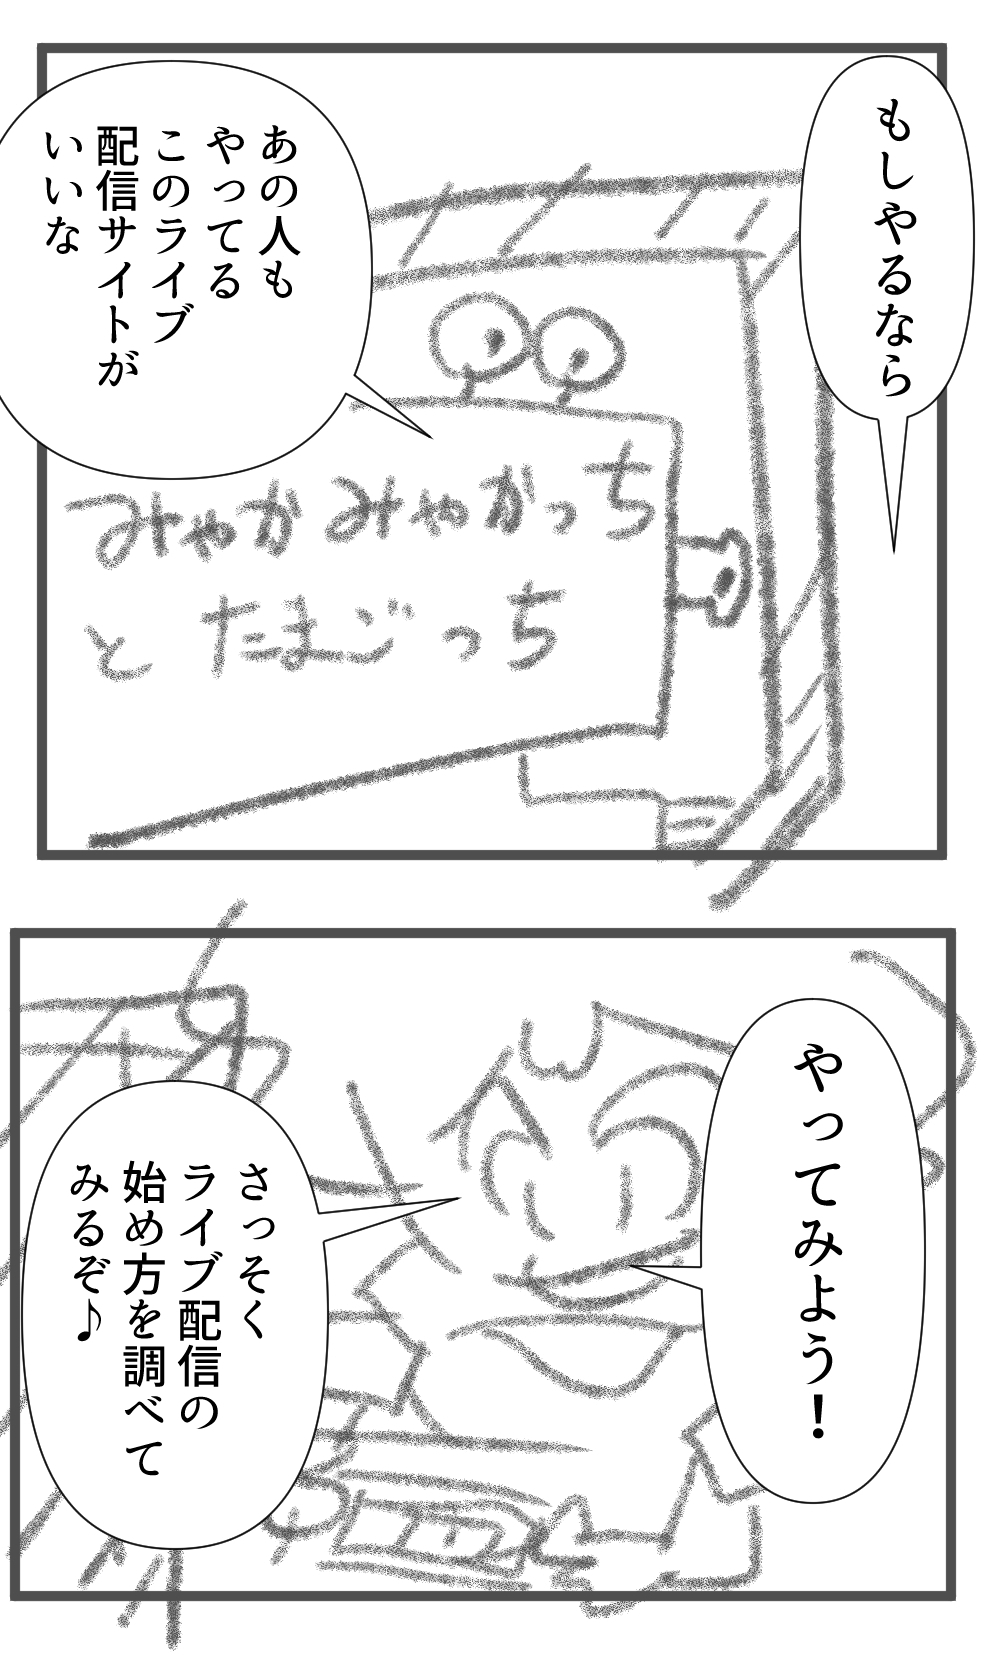 もしやるなら
あの人も
やってる
このライブ
配信サイトが
いいな
みやかみやかっち
とたまごっち
やってみよう！
さっそく
ライブ配信の
始め方を調べて
みるぞ♪